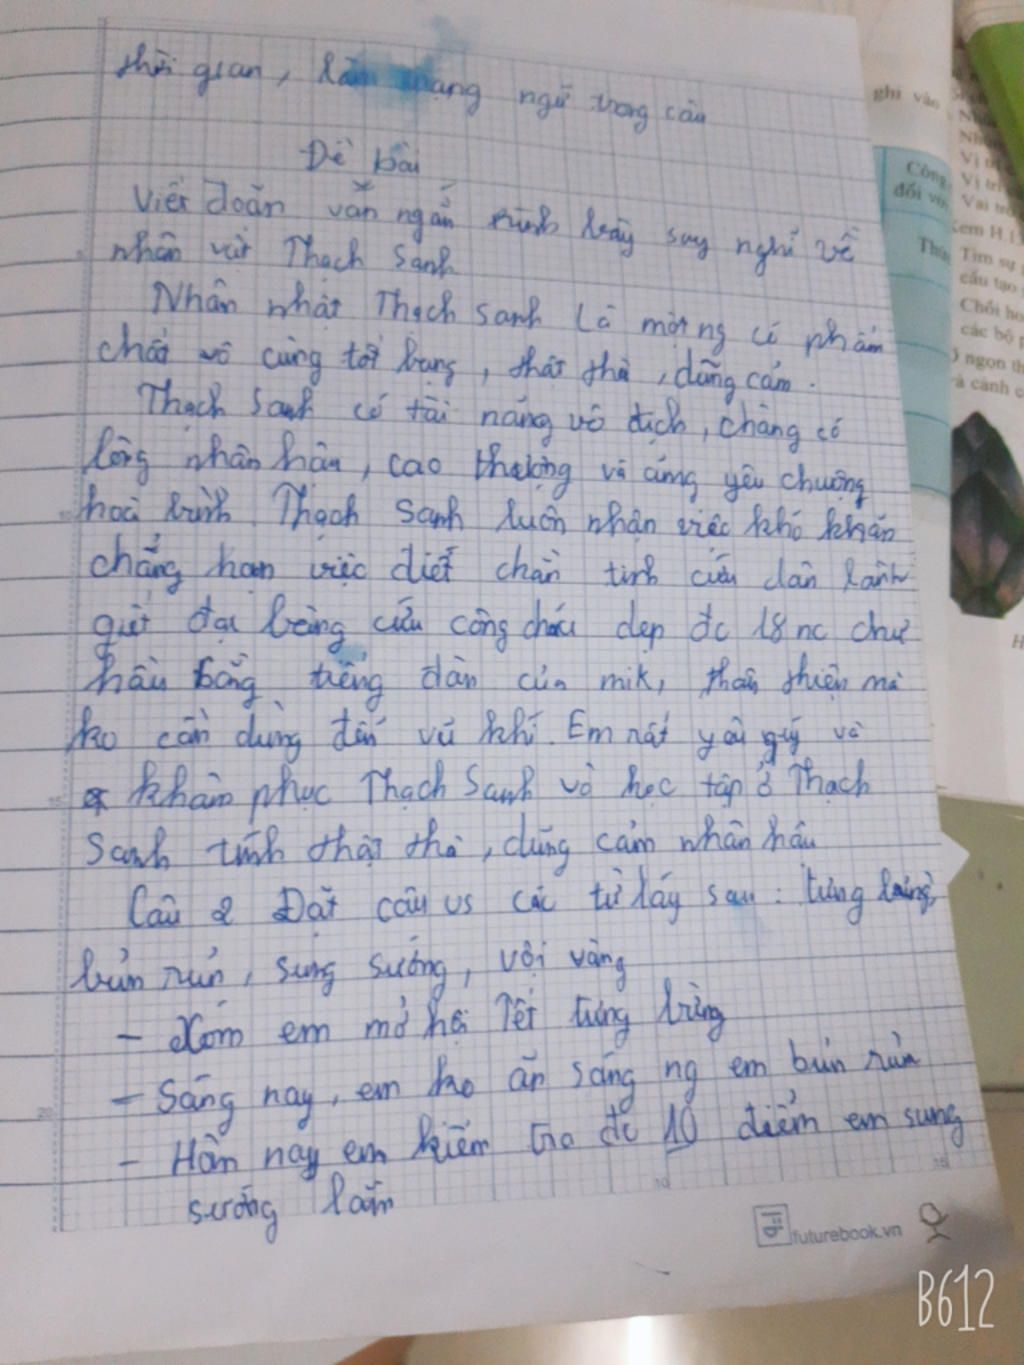 thời gian, làm trạng ngữ trong câu
Đề bài
Viết đoạn văn ngắn trình bày suy nghĩ về
nhân vật Thạch Sanh
Nhân nhật Thạch Sanh là một ng có phẩm
chất vô cùng tốt bụng, thât thà, dũng cảm.
Thạch Sanh có tài năng vô địch, chàng có
lòng nhân hậu, cao thượng và cũng yêu chuộng
hoà bình. Thạch Sanh luôn nhận việc khó khăn
chẳng hạn việc diết chằn tinh cứu dân lành
giết đại bàng cứu công chúa dẹp đc 18 nc chư
hầu bằng tiếng đàn của mik, thân thiện mà
ko cần dùng đến vũ khí. Em rất yêu quý và
khâm phục Thạch Sanh và học tập ở Thạch
Sanh tính thật thà, dũng cảm nhân hậu
Câu 2 Đặt câu vs các từ láy sau: tưng bừng,
bủn rủn, sung sướng, vội vàng
- Xóm em mở hội Tết tưng bừng
- Sáng nay, em ko ăn sáng ng em bủn rủn
- Hôm nay em kiểm tra đc 10 điểm em sung
sướng lắm
futurebook.vn
ghi vào
Công
đối với
Vị trí
Vai trò
Xem H.1
Tìm sự
cấu tạo
Chồi ho
các bộ p
ngọn th
và cành c
B612